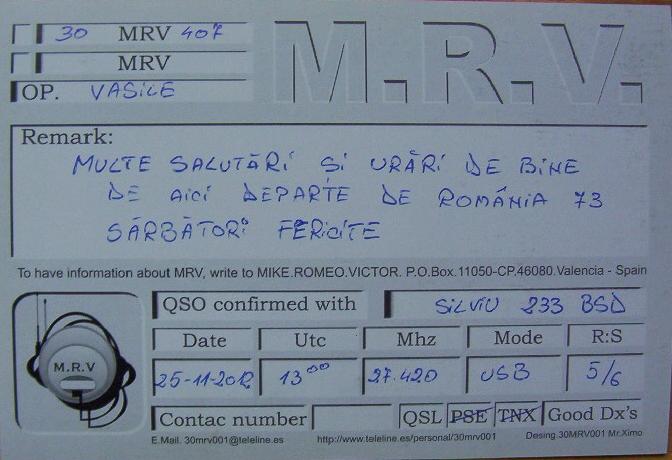 30 MRV 407
M.R.V.
MRV
OP. VASILE
Remark:
MULTE SALUTĂRI ȘI URĂRI DE BINE
DE AICI DEPARTE DE ROMÂNIA 73
SĂRBĂTORI FERICITE
To have information about MRV, write to MIKE.ROMEO.VICTOR. P.O.Box.11050-CP.46080.Valencia - Spain
QSO confirmed with SILVIU 233 BSD
Date Utc Mhz Mode R:S
25-11-2012 13⁰⁰ 27.420 USB 5/6
M.R.V
Contac number QSL PSE TNX Good Dx's
E.Mail. 30mrv001@teleline.es http://www.teleline.es/personal/30mrv001 Desing 30MRV001 Mr.Ximo